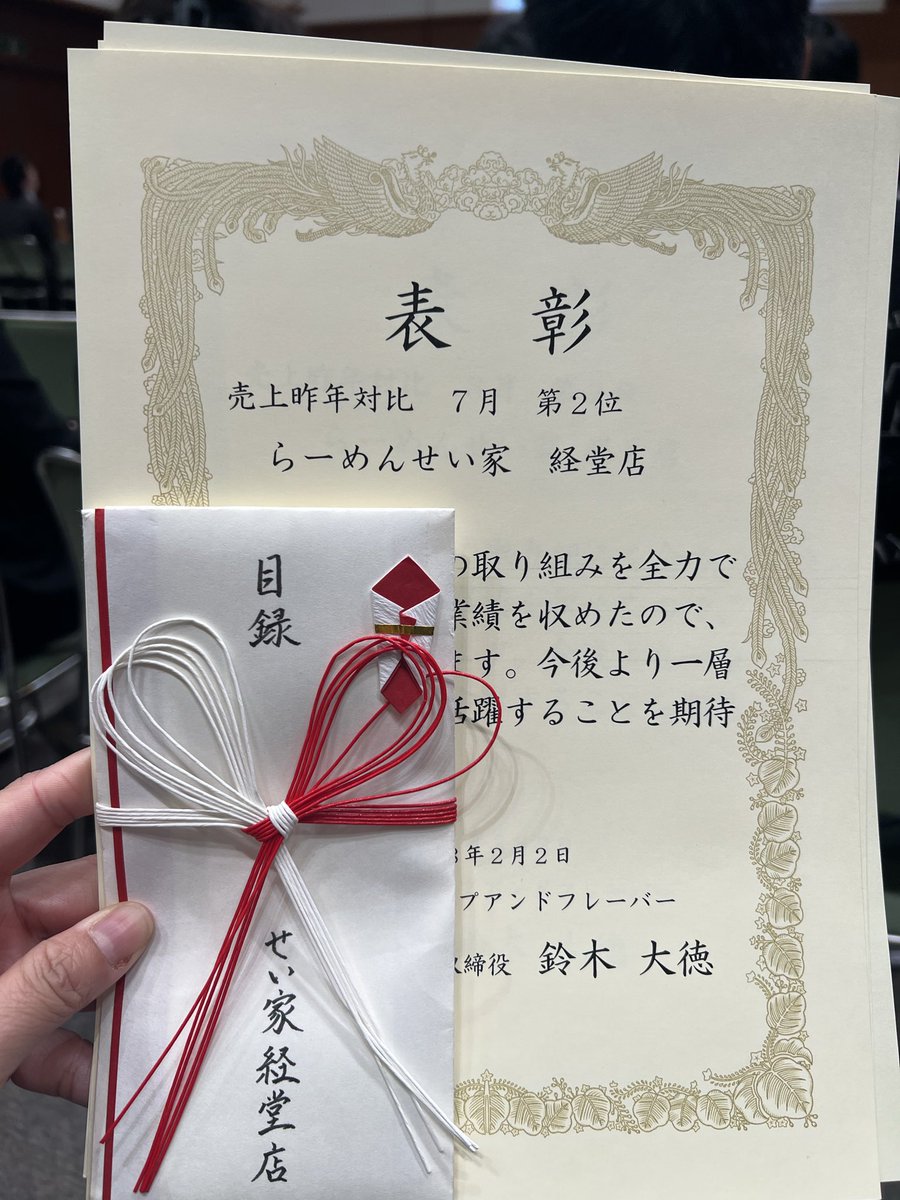 表彰
売上昨年対比 7月 第2位
らーめんせい家 経堂店
の取り組みを全力で
業績を収めたので、
ます。今後より一層
活躍することを期待
年2月2日
プアンドフレーバー
締役 鈴木 大徳
目録
せい家経堂店